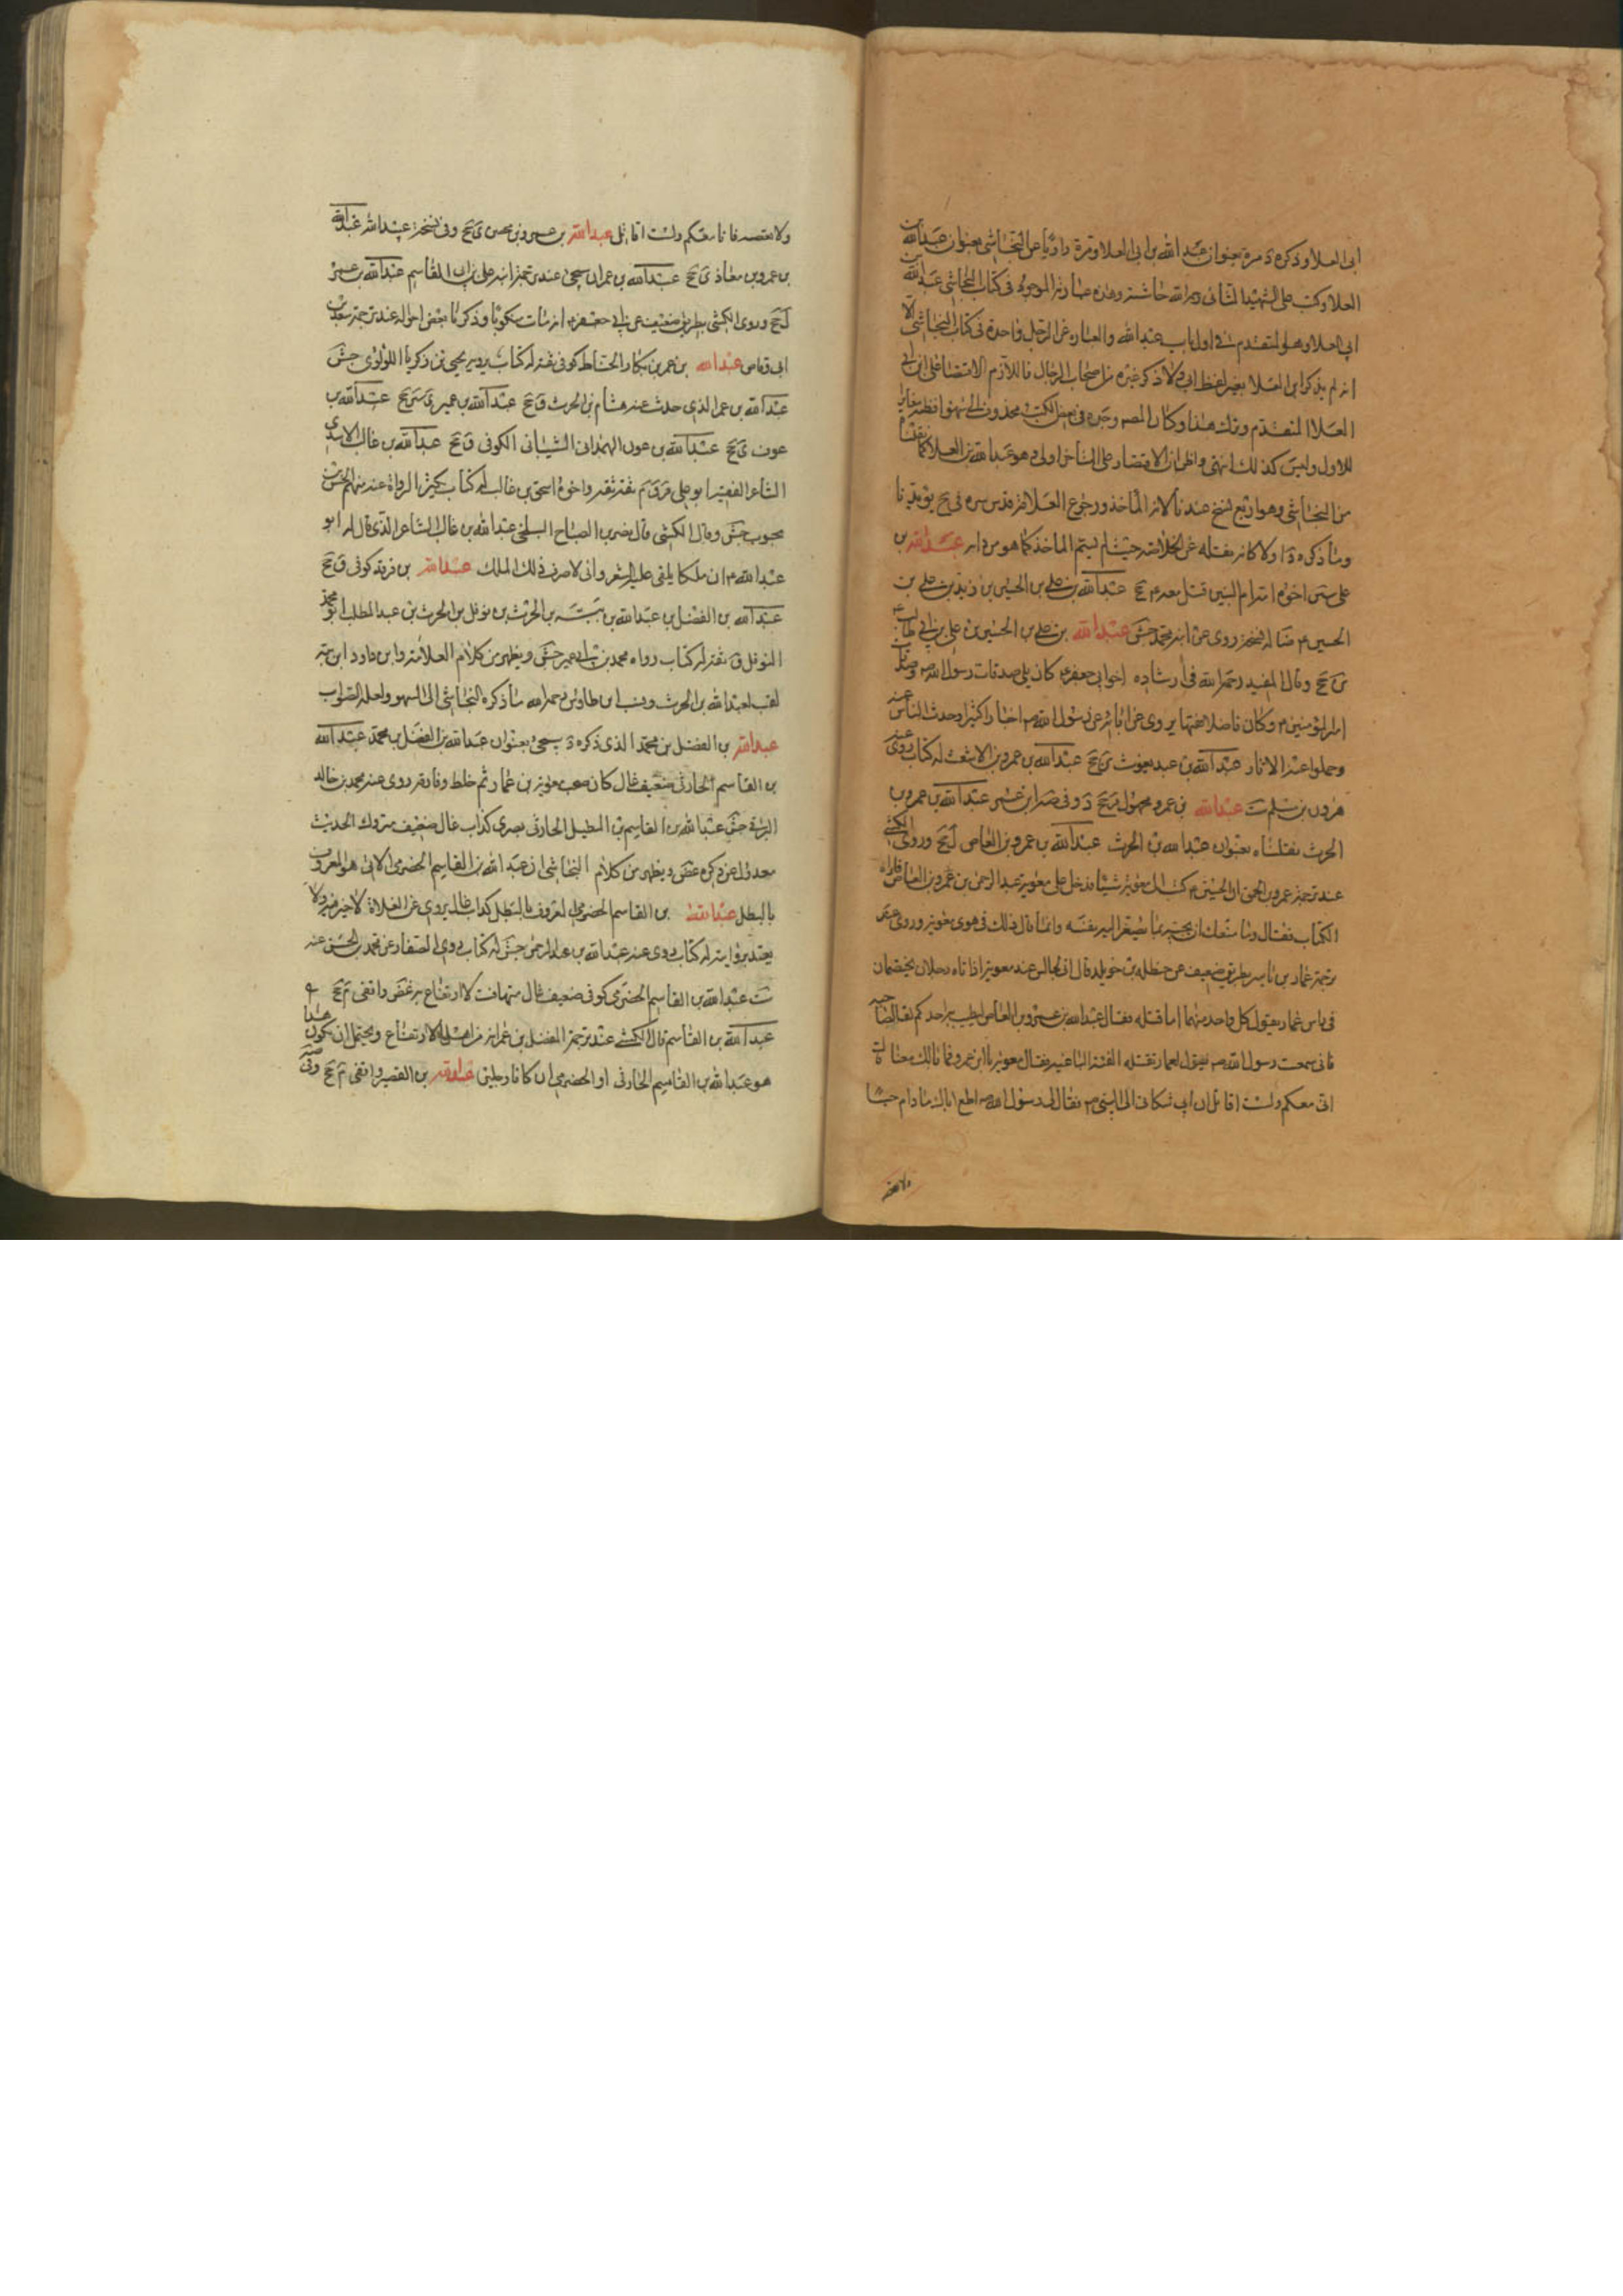 ابى العلا وذكره د مرة بعنوان عبد الله بن ابى العلا ومرة راويا عن النجاشى بعنوان عبد الله بن
العلا وكتب على الشهيد الثانى رحمه الله حاشية وهذه عبارته الموجود فى كتاب النجاشى عبد الله بن
ابى العلا وهو المتقدم فى اول باب عبد الله والعبارة عن الرجل واحدة فى كتاب النجاشى الا
انه لم يذكر ابن العلا بغير لفظ ابى ولا ذكر غيره من اصحاب الرجال فاللازم الاقتصار على ابن ابى
العلا المتقدم وترك هذا وكان المصـ وجده فى بعض الكتب محذوف ابى سهوا فظنه مغاير
للاول وليس كذلك انتهى واظن ان الاقتصار على المتاخر اولى وهو عبد الله بن العلا كما نقلنا
من النجاشى وهو اربع نسخ عندنا لانه المأخذ ورجوع العلامة قدس سره فى يح يؤيد ما
وما ذكره د اولا كانه نقله عن الخلاصة حيث لم يسم المأخذ كما هو من دابه عبد الله بن
على سين اخوه امه ام البنين قتل معه ع جخ عبد الله بن على بن الحسين بن زيد بن على بن
الحسين ع ضا له نسخة روى عن ابيه محمد جش عبد الله بن على بن الحسين بن على بن ابى طالب ع
ين جخ وقال المفيد رحمه الله فى ارشاده اخوابى جعفر ع كان يلى صدقات رسول الله ص وصدقات
امير المؤمنين ع وكان فاضلا فقيها يروى عن ابائه عن رسول الله ص اخبارا كثيرا وحدث الناس عنه
وحملوا عنه الاثار عبد الله بن عبد يغوث ين جخ عبد الله بن عمرو بن الاشعث له كتاب روى عنه
هرون بن مسلم ست عبد الله بن عمرو مجهول قر جخ د وفى صه ابن عمر عبد الله بن عمرو بن
الحرث نقلناه بعنوان عبد الله بن الحرث عبد الله بن عمرو بن العاص ل جخ وروى الكشى
عند ترجمة عمرو بن الحمق ان الحسين ع كتب الى معوية شيئا فدخل على معوية عبد الرحمن بن عمرو بن العاص فاراه
الكتاب فقال وما منعك ان تجيبه بما يصغر اليه نفسه وانما قال ذلك فى هوى معوية وروى عند
ترجمة عمار بن ياسر بطريق ضعيف عن حنظلة بن خويلد قال انى لجالس عند معوية اذا تاه رجلان يختصمان
فى راس عمار يقول كل واحد منهما انا قتلته فقال عبد الله بن عمرو بن العاص ليطب به احدكم نفسا لصاحبه
فانى سمعت رسول الله ص يقول لعمار تقتله الفئة الباغية فقال معوية يا ابن عمرو فما بالك معنا قال
انى معكم ولست اقاتل ان ابى شكانى الى النبى ص فقال لى رسول الله ص اطع اباك ما دام حيا
ولا تعصه
ولا تعصه فانا معكم ولست اقاتل عبد الله بن عمرو بن محصن ى جخ وفى نسخة عبيد الله عبد الله
بن عمرو بن معاذ ى جخ عبد الله بن عمران سيجئ عند ترجمة ابنه على بن ابى القاسم عبد الله بن عمر
ل جخ وروى الكشى بطريق ضعيف عن ابى جعفر ع انه مات منكوبا وذكرنا بعض احواله عند ترجمة سعد بن
ابى وقاص عبد الله بن عمر بن بكار الحناط كوفى ثقة له كتاب يرويه يحيى بن زكريا اللؤلؤى جش
عبد الله بن عمر الذى حدث عنه هشام بن الحرث ق جخ عبد الله بن عمير ى سين جخ عبد الله بن
عون ى جخ عبد الله بن عون الهمدانى الشيبانى الكوفى ق جخ عبد الله بن غالب الاسدى
الشاعر الفقيه ابو على قر ق م ثقة ثقة واخوه اسحق بن غالب له كتاب يكثر الرواة عنه منهم الحسن بن
محبوب جش وقال الكشى قال نصر بن الصباح البلخى عبد الله بن غالب الشاعر الذى قال له ابو
عبد الله ع ان ملكا يلقى عليه الشعر وانى لاعرف ذلك الملك عبد الله بن فرقد كوفى ق جخ
عبد الله بن الفضل بن عبد الله بن ببه بن الحرث بن نوفل بن الحرث بن عبد المطلب ابو محمد
النوفلى ق ثقة له كتاب رواه محمد بن ابى عمير جش ويظهر من كلام العلامة وابن داود ان ببه
لقب لعبد الله بن الحرث ونسب ابن طاوس رحمه الله ما ذكره النجاشى الى السهو ولعله الصواب
عبد الله بن الفضل بن محمد الذى ذكره د يسجئ بعنوان عبد الله بن الفضل بن محمد عبد الله
بن القاسم الحارثى ضعيف غال كان صحب معوية بن عمار ثم خلط وفارقه روى عنه محمد بن خالد
البرقى جش عبد الله بن القاسم بن البطل الحارثى بصرى كذاب غال ضعيف متروك الحديث
معدول عن ذكره غض ويظهر من كلام النجاشى ان عبد الله بن القاسم الحضرمى الاتى هو المعروف
بالبطل عبد الله بن القاسم الحضرمى المعروف بالبطل كذاب غال يروى عن الغلاة لا خير فيه ولا
يعتد بروايته له كتاب روى عنه عبد الله بن عبد الرحمن جش له كتاب روى الصفار عن محمد بن الحسين عنه
ست عبد الله بن القاسم الحضرمى كوفى ضعيف غال متهافت لا ارتفاع به غض واقفى م جخ
عبد الله بن القاسم قال الكشى عند ترجمة المفضل بن عمر انه من اهل الارتفاع ويحتمل ان يكون هذا
هو عبد الله بن القاسم الحارثى او الحضرمى ان كانا رجلين عبد الله بن القصير واقفى م جخ وفى صه